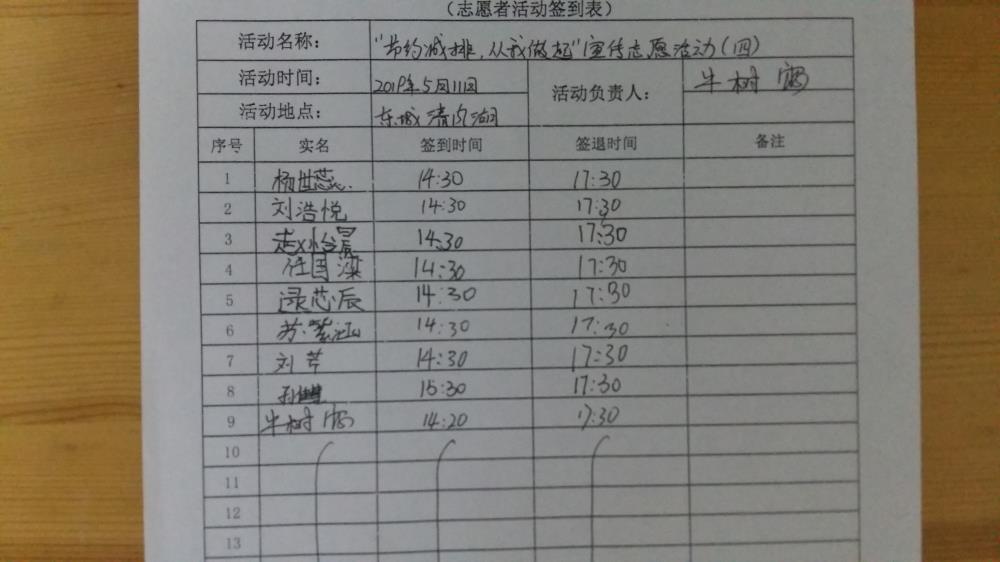 （志愿者活动签到表）
活动名称： “节约减排，从我做起”宣传志愿活动（四）
活动时间： 2019年5月11日 活动负责人： 牛树
活动地点： 东城清风湖
序号 实名 签到时间 签退时间 备注
1 杨世蕊 14:30 17:30
2 刘浩悦 14:30 17:30
3 赵怡晨 14:30 17:30
4 任 14:30 17:30
5 芯辰 14:30 17:30
6 苏 涵 14:30 17:30
7 刘芊 14:30 17:30
8 孙 15:30 17:30
9 牛树 14:20 17:30
10
11
12
13